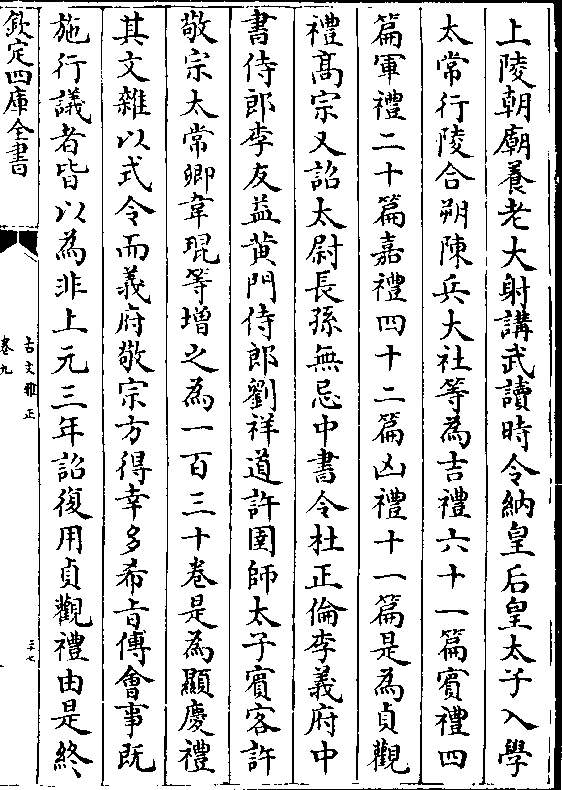 上陵朝廟養老大射講武讀時令納皇后皇太子入學
太常行陵合朔陳兵大社等為吉禮六十一篇賓禮四
篇軍禮二十篇嘉禮四十二篇凶禮十一篇是為貞觀
禮髙宗又詔太尉長孫無忌中書令杜正倫李義府中
書侍郎李友益黄門侍郎劉祥道許圉師太子賓客許
敬宗太常卿韋琨等增之為一百三十卷是為顯慶禮
其文雜以式令而義府敬宗方得幸多希旨傅會事既
施行議者皆以為非上元三年詔復用貞觀禮由是終
欽定四庫全書
古文雅正
卷九
三七